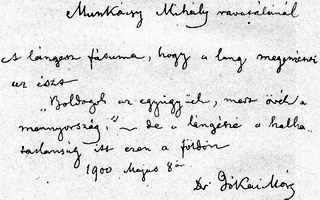 Munkácsy Mihály ravatalánál
A lángész fátuma, hogy a láng megemészti
az észt
„Boldogok az együgyüek, mert övék a
mennyország," ~ de a lángészé a halha-
tatlanság itt ezen a földön
1900 Május 8án
Dr Jókai Mór